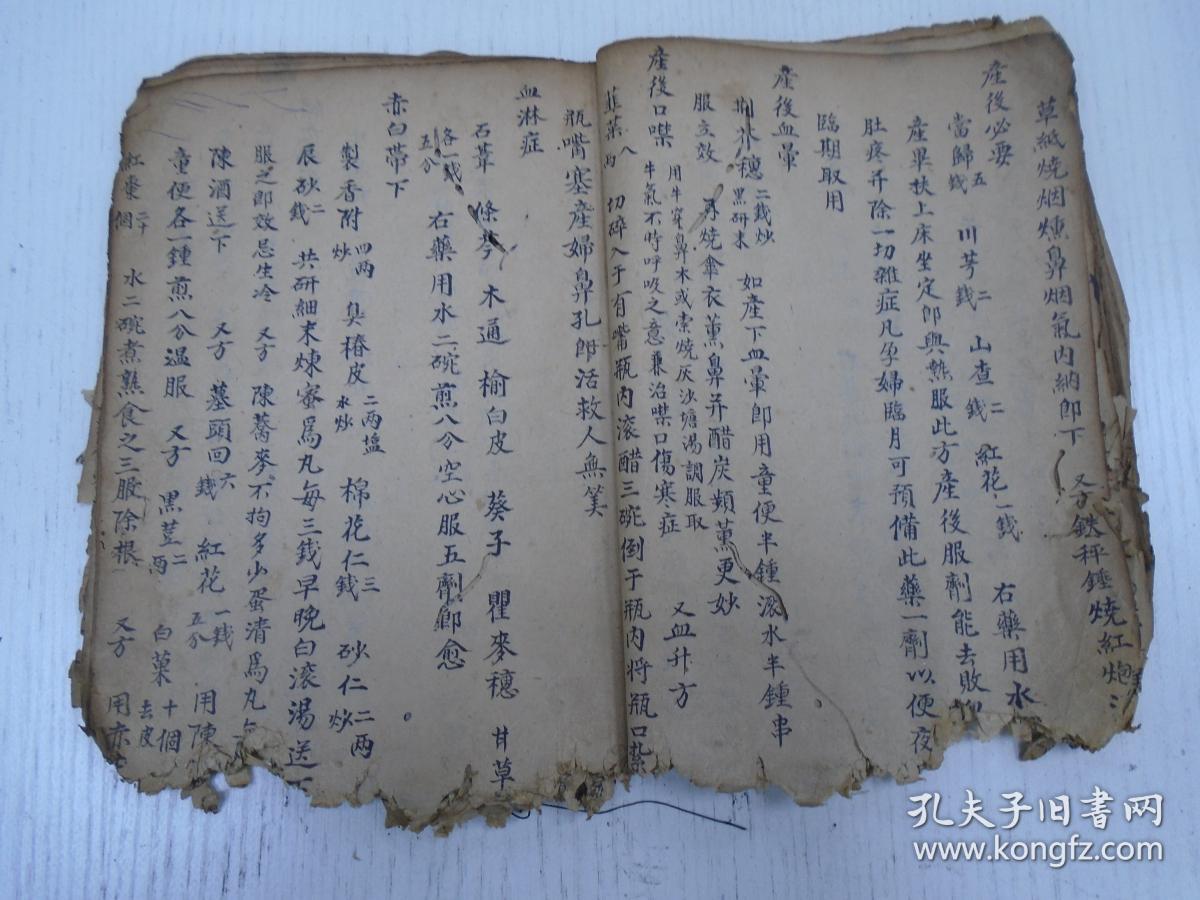 草紙燒烟燻鼻烟氣內納即下 又方鉄秤錘燒紅炮
產後必要
當歸五錢 川芎二錢 山查二錢 紅花一錢 右藥用水
產畢扶上床坐定即與熱服此方產後服劑能去敗
肚疼并除一切雜症凡孕婦臨月可預備此藥一劑以便夜
臨期取用
產後血暈
荆芥穗二錢炒黑研末 如產下血暈即用童便半鍾滚水半鍾串
服立效 再燒傘衣薰鼻并醋炭類薰更妙
產後口噤 用牛穿鼻木或索燒灰沙塘湯調服取牛氣不時呼吸之意兼治噤口傷寒症 又血升方
韮菜八兩 切碎入于有嘴瓶內滚醋三碗倒于瓶內将瓶口紮
瓶嘴塞產婦鼻孔即活救人無筭
血淋症
石葦 條芩 木通 榆白皮 葵子 瞿麥穗 甘草
各一錢五分 右藥用水二碗煎八分空心服五劑即愈
赤白帶下
製香附四兩炒 臭椿皮二兩塩水炒 棉花仁三錢 砂仁二兩炒
辰砂二錢 共研細末煉蜜爲丸每三錢早晚白滚湯送
服之即效忌生冷 又方 陳蕎麥不拘多少蛋清爲丸每
陳酒送下 又方 墓頭回六錢 紅花一錢五分 用陳
童便各一鍾煎八分温服 又方 黑荳二兩 白菓十個去皮
紅棗二十個 水二碗煮熟食之三服除根 又方 用赤
孔夫子旧書网
www.kongfz.com